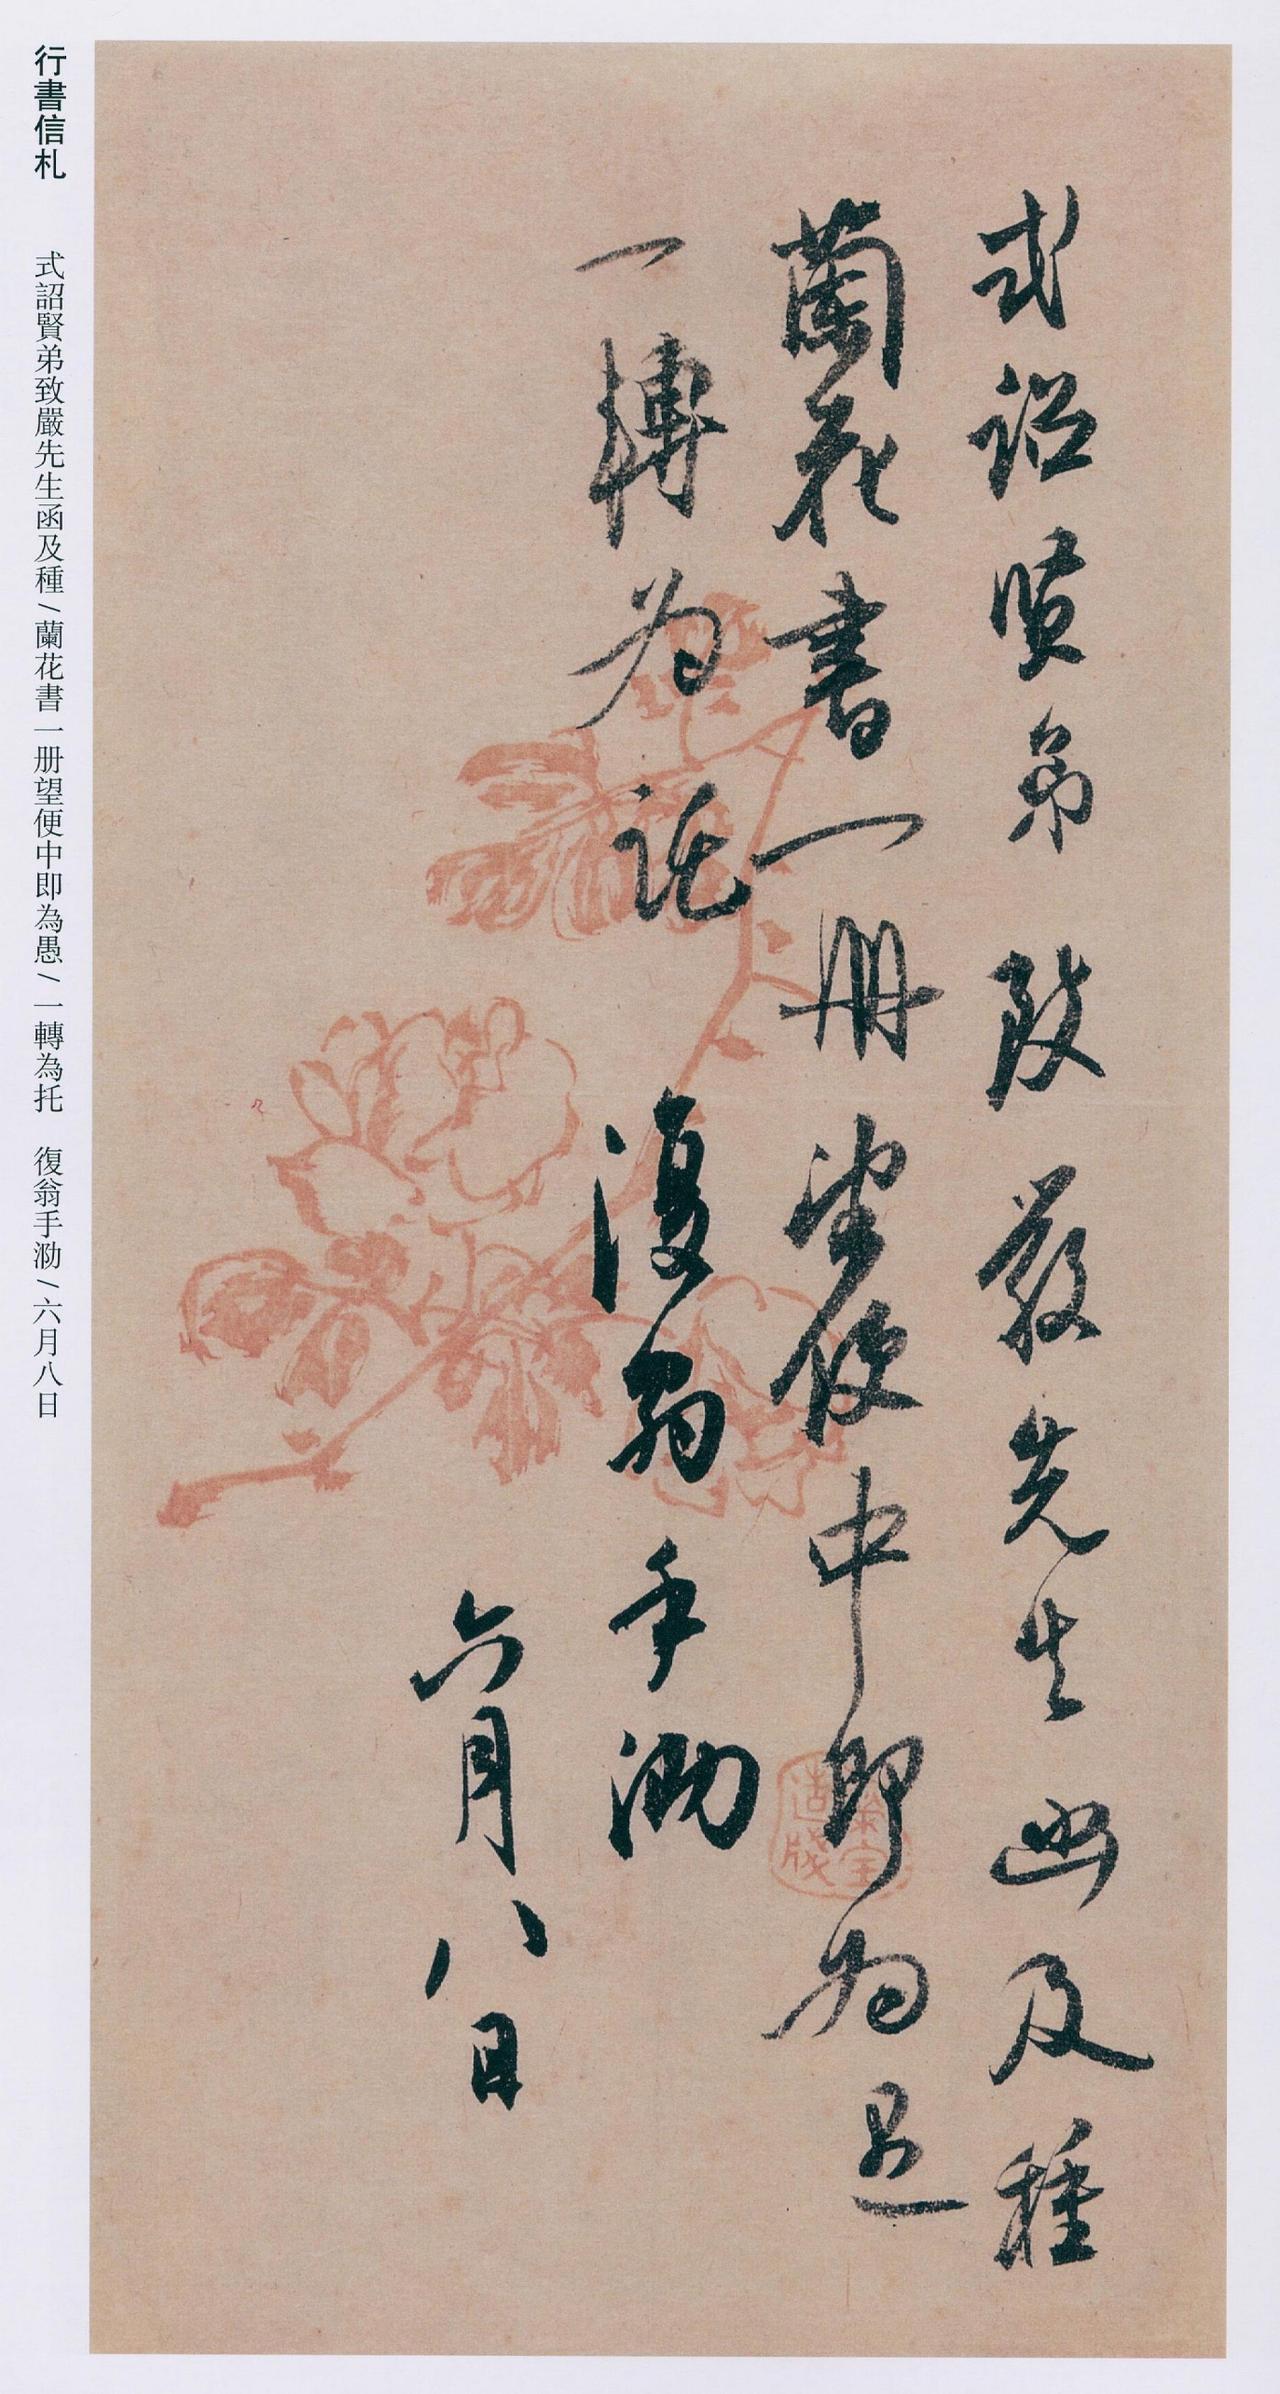 式詔賢弟致嚴先生函及種
蘭花書一册望便中即為愚
一轉為託 復翁手泐
六月八日
榮宝
造牋
行書信札 式詔賢弟致嚴先生函及種/蘭花書一册望便中即為愚/一轉為托 復翁手泐/六月八日